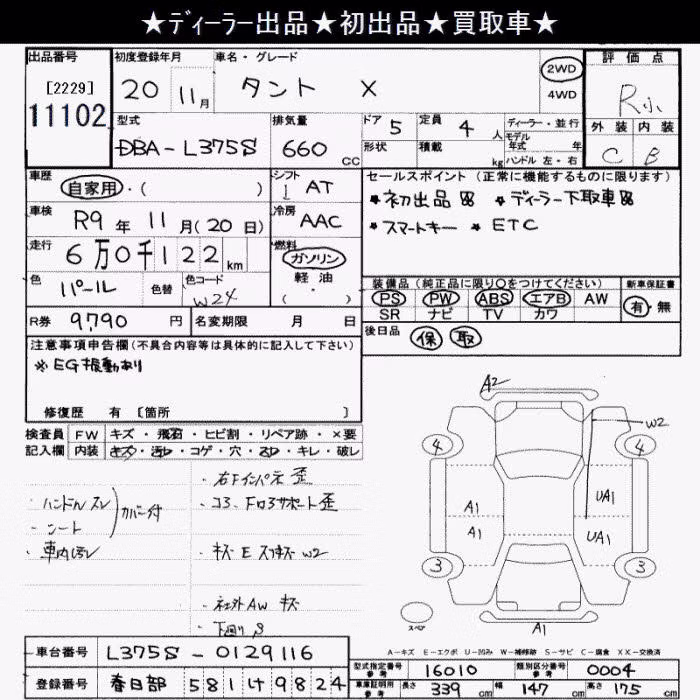 ★ディーラー出品★初出品★買取車★
出品番号
[2229]
11102
初度登録年月
20 11月
車名・グレード
タント X
2WD
4WD
評価点
R小
外装 内装
C B
型式
DBA-L375S
排気量
660 CC
ドア 5
形状
定員 4人
積載 kg
ディーラー・並行
モデル年式 年
ハンドル 左・右
車歴
自家用・( )
シフト
1 AT
車検
R9年11月(20日)
冷房
AAC
走行
6万0千122km
燃料
ガソリン
軽油
( )
色
パール
色替
色コード
W24
R券 9,790円
名変期限 月 日
セールスポイント(正常に機能するものに限ります)
★初出品 ★ディーラー下取車
★スマートキー ★ETC
装備品(純正品に限り○をつけてください)
PS PW ABS エアB AW
SR ナビ TV カワ
新車保証書
有・無
後日品 保 取
注意事項申告欄(不具合内容等は具体的に記入して下さい)
※EG振動あり
修復歴 有 [箇所 ]
検査員記入欄
FW キズ・飛石・ヒビ割・リペア跡・×要
内装 キズ・汚レ・コゲ・穴・スレ・キレ・破レ
・ハンドルスレ
・シート
カバー付
・車内汚レ
・右Fインパネ歪
・コ3、Fロ3サポート歪
・キズ E スリキズ W2
・社外AW キズ
・下廻りS
A2
W2
4
4
A1
UA1
A1
UA1
3
3
スペア
A1
A-キズ E-エクボ U-凹み W-補修跡 S-サビ C-腐食 XX-交換済
車台番号 L375S-0129116
登録番号 春日部 581け9824
型式指定番号 参考 16010
類別区分番号 参考 0004
車庫証明用 参考 長さ 339cm 幅 147cm 高さ 175cm